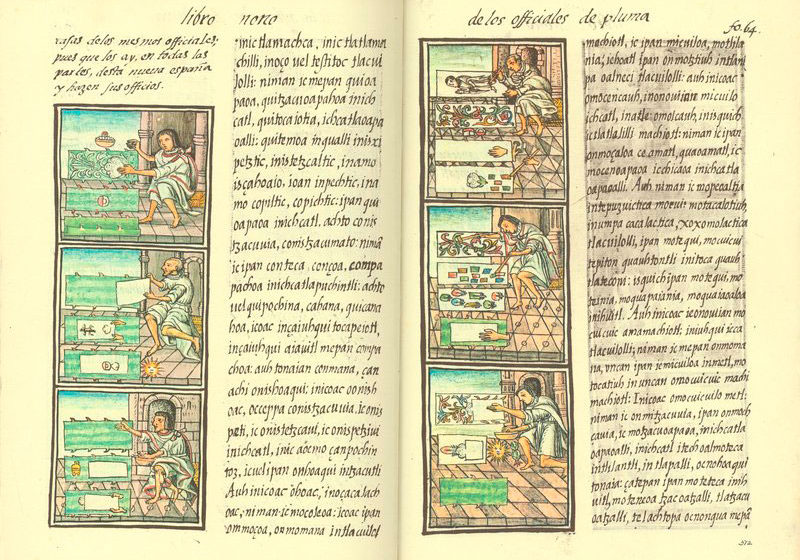 libro nono
rafas de los mesmos officiales;
pues que los ay, en todas las
partes, desta nueva españa
y hazen sus officios.
inic tlamachca, inic tlatlama
chilli, inoço vel teșitoc tlacui
lolli: niman ic mepan quioa
paoa, quitzacuoapahoa inich
catl, quitocaiotia, ichcatlaoapa
oalli: quitemoa inqualli inisxi
petztic, inistetzcaltic, inamo
iscahoaio, ioan inpechtic, ina
mo copiltic, copichtic: ipan qui
oapaoa inichcatl. achto conis
tzacuvia, comistzacumato: nimã
ic ipan conteca, conçoa, compa
pachoa inichcatlapuchintli: achto
vel quipochina, cahana, quicana
hoa, icoac inçaiuhqui tocapeiotl,
inçaiuhqui aiauitl mepan compa
choa: auh tonaian conmana, can
achi onishoaqui: inicoac oonish
oac, occeppa conistzacuvia, ic onis
petzi, ic onistetzcaui, ic onispetziui
inichcatl, inic aocmo çan pochin
toz, icuel ipan onhoaqui intzacutli
Auh inicoac ohoac, inoçacalach
oac, niman ic mocoleoa: icoac ipan
ommoçoa, onmomana intlacuilol
de los officiales de pluma
fo. 64.
machiotl, ic ipan micuiloa, mothilа
nia; ichoatl ipan onmotztiuh intlani
pa oalneci tlacuilolli: auh inicoac
omocencauh, inonouiian micuilo
ichcatl, inatle omolcauh, inisquich
ictlatlalilli machiotl: niman ic ipan
onmoçaloa ce amatl, quaoamatl, ic
mocenoapaoa icchicaoa inichcatla
oapaoalli. Auh niman ic mopeoaltia
intepuzuictica motequi: motacalotiuh,
inumpa cacalactica, xoxomolactica
tlacuilolli, ipan motequi, mocuicui
tepiton quauhtontli initoca quauh
tlateconi: isquich ipan motequi, mo
teinia, moquapaiania, moquaioaloa
inihuitl. Auh inicoac ic onouiian mo
cuicuic amamachiotl: iniuhqui icca
tlacuilolli; niman ic mepan onmoma
na, vncan ipan ic micuiloa inmetl, mo
tocatiuh in uncan omocuicuic machi
machiotl. Inicoac omocuicuilo metl:
niman ic onmitzacuvia, ipan onmoch
cauia, ic motzacuoapaoa, inichcatla
oapaoatl, inichcatl itech oalmoteca
intlilantli, in tlapalli, ocnohoa qui
tonaia: çatepan ipan moteteca inih
uitl, motencoa tzacoatzalli, tlatzacu
oatzalli, tel achtopa ocnonqua mepã
512